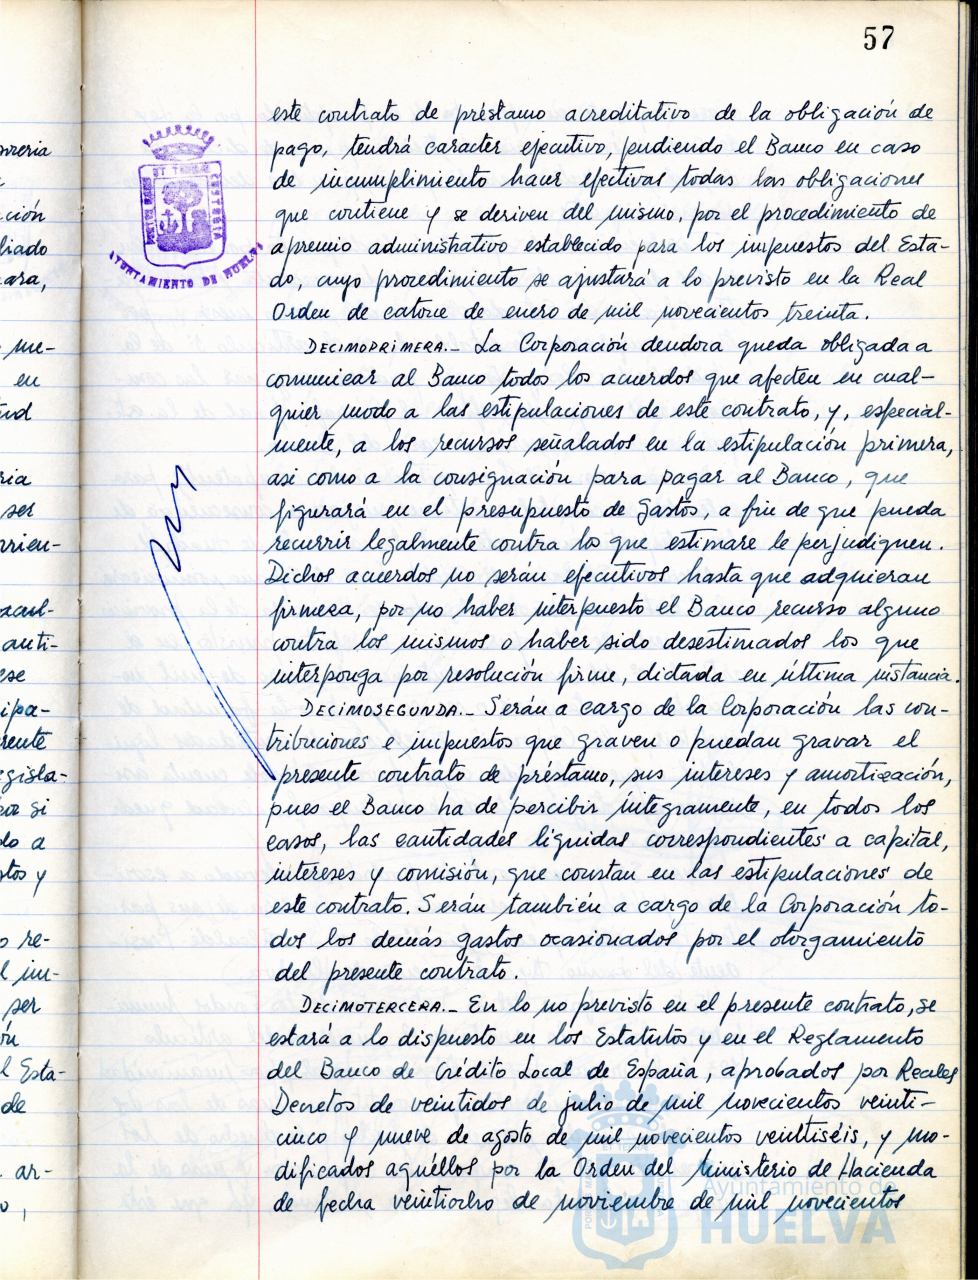 57
este contrato de préstamo acreditativo de la obligación de
pago, tendrá caracter ejecutivo, pudiendo el Banco en caso
de incumplimiento hacer efectivas todas las obligaciones
que contiene y se deriven del mismo, por el procedimiento de
apremio administrativo establecido para los impuestos del Esta-
do, cuyo procedimiento se ajustará a lo previsto en la Real
Orden de catorce de enero de mil novecientos treinta.
DECIMOPRIMERA.- La Corporación deudora queda obligada a
comunicar al Banco todos los acuerdos que afecten en cual-
quier modo a las estipulaciones de este contrato, y, especial-
mente, a los recursos señalados en la estipulación primera,
asi como a la consignación para pagar al Banco, que
figurará en el presupuesto de gastos, a fin de que pueda
recurrir legalmente contra los que estimare le perjudiquen.
Dichos acuerdos no serán ejecutivos hasta que adquieran
firmeza, por no haber interpuesto el Banco recurso alguno
contra los mismos o haber sido desestimados los que
interponga por resolución firme, dictada en última instancia.
DECIMOSEGUNDA.- Serán a cargo de la Corporación las con-
tribuciones e impuestos que graven o puedan gravar el
presente contrato de préstamo, sus intereses y amortización,
pues el Banco ha de percibir íntegramente, en todos los
casos, las cantidades líquidas correspondientes a capital,
intereses y comisión, que constan en las estipulaciones de
este contrato. Serán también a cargo de la Corporación to-
dos los demás gastos ocasionados por el otorgamiento
del presente contrato.
DECIMOTERCERA.- En lo no previsto en el presente contrato, se
estará a lo dispuesto en los Estatutos y en el Reglamento
del Banco de Crédito Local de España, aprobados por Reales
Decretos de veintidos de julio de mil novecientos veinti-
cinco y nueve de agosto de mil novecientos veintiséis, y mo-
dificados aquéllos por la Orden del Ministerio de Hacienda
de fecha veintiocho de noviembre de mil novecientos
AYUNTAMIENTO DE HUELVA
Ayuntamiento de
HUELVA